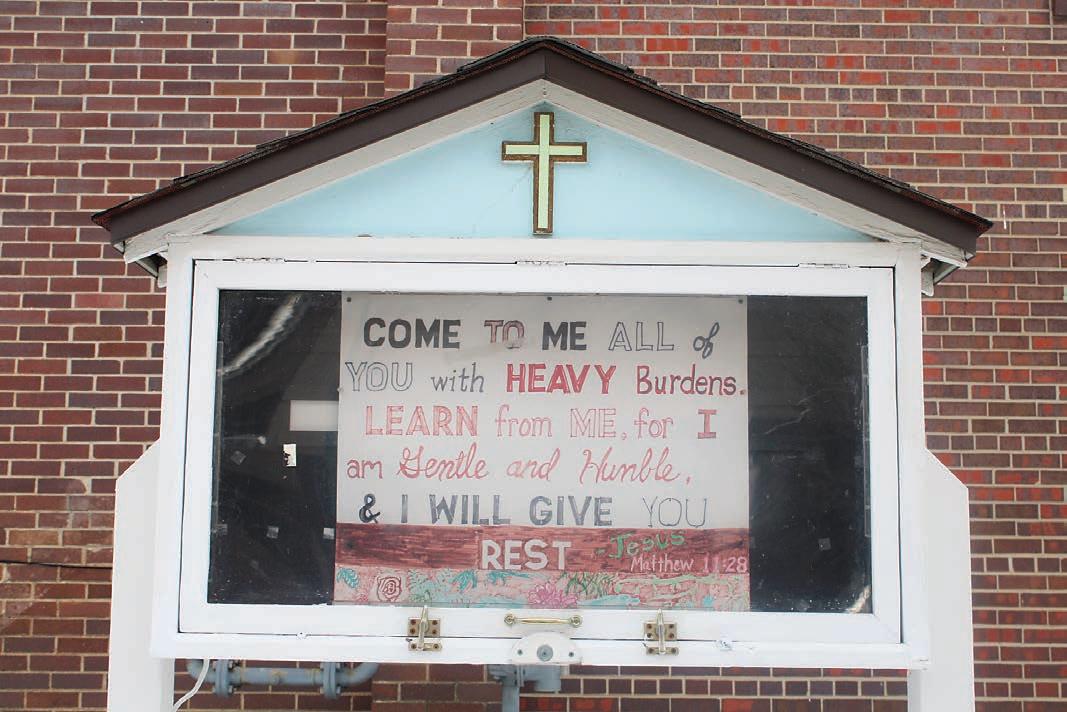 COME TO ME ALL of
YOU with HEAVY Burdens.
LEARN from ME, for I
am Gentle and Humble,
& I WILL GIVE YOU
REST -Jesus
Matthew 11:28